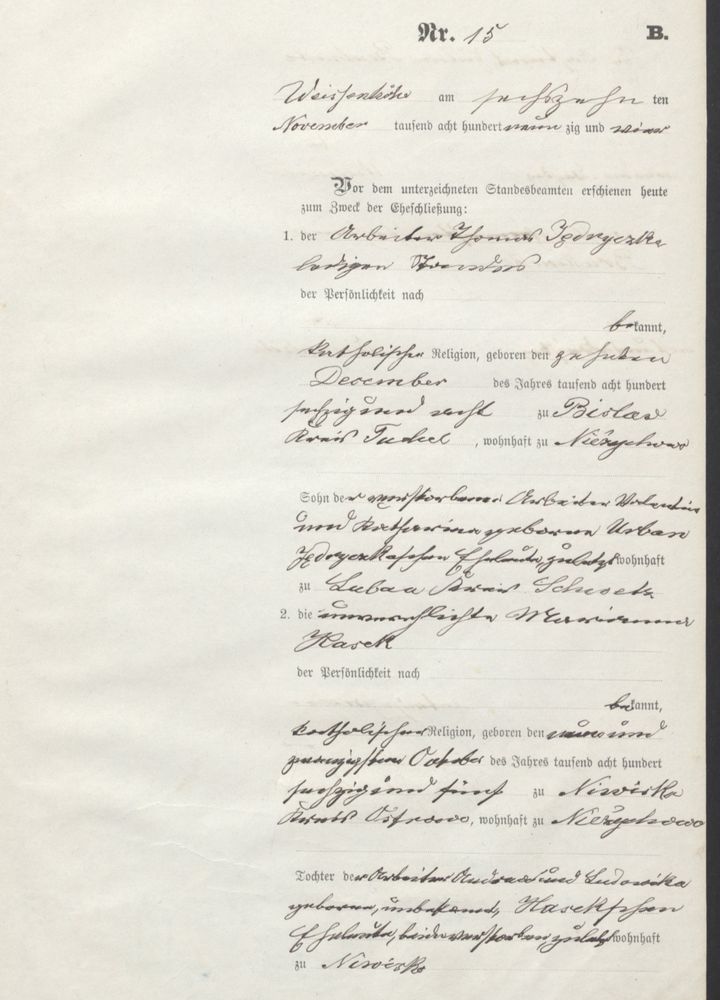 Nr. 15 B.
Weissenhöhe am sechszehn ten
November tausend acht hundert neun zig und vier
Vor dem unterzeichneten Standesbeamten erschienen heute
zum Zweck der Eheschließung:
1. der Arbeiter Thomas Jędryczka
ledigen Standes
der Persönlichkeit nach
bekannt,
katholischer Religion, geboren den zehnten
December des Jahres tausend acht hundert
sechzig und acht zu Bislaw
Kreis Tuchel, wohnhaft zu Niezychowo
Sohn der verstorbenen Arbeiter Valentin
und Katharina geborne Urban
Jędryczkaschen Eheleute, zuletzt wohnhaft
zu Kreis Schwetz
2. die unverehlichte Marianna
Hasek
der Persönlichkeit nach
bekannt,
katholischer Religion, geboren den neun und
zwanzigsten October des Jahres tausend acht hundert
sechzig und fünf zu Niwiska
Kreis Ostrowo, wohnhaft zu Niezychowo
Tochter der Arbeiter Andreas und Ludowika
geborne, unbekannt, Hasekschen
Eheleute, beide verstorben, zuletzt wohnhaft
zu Niwiska